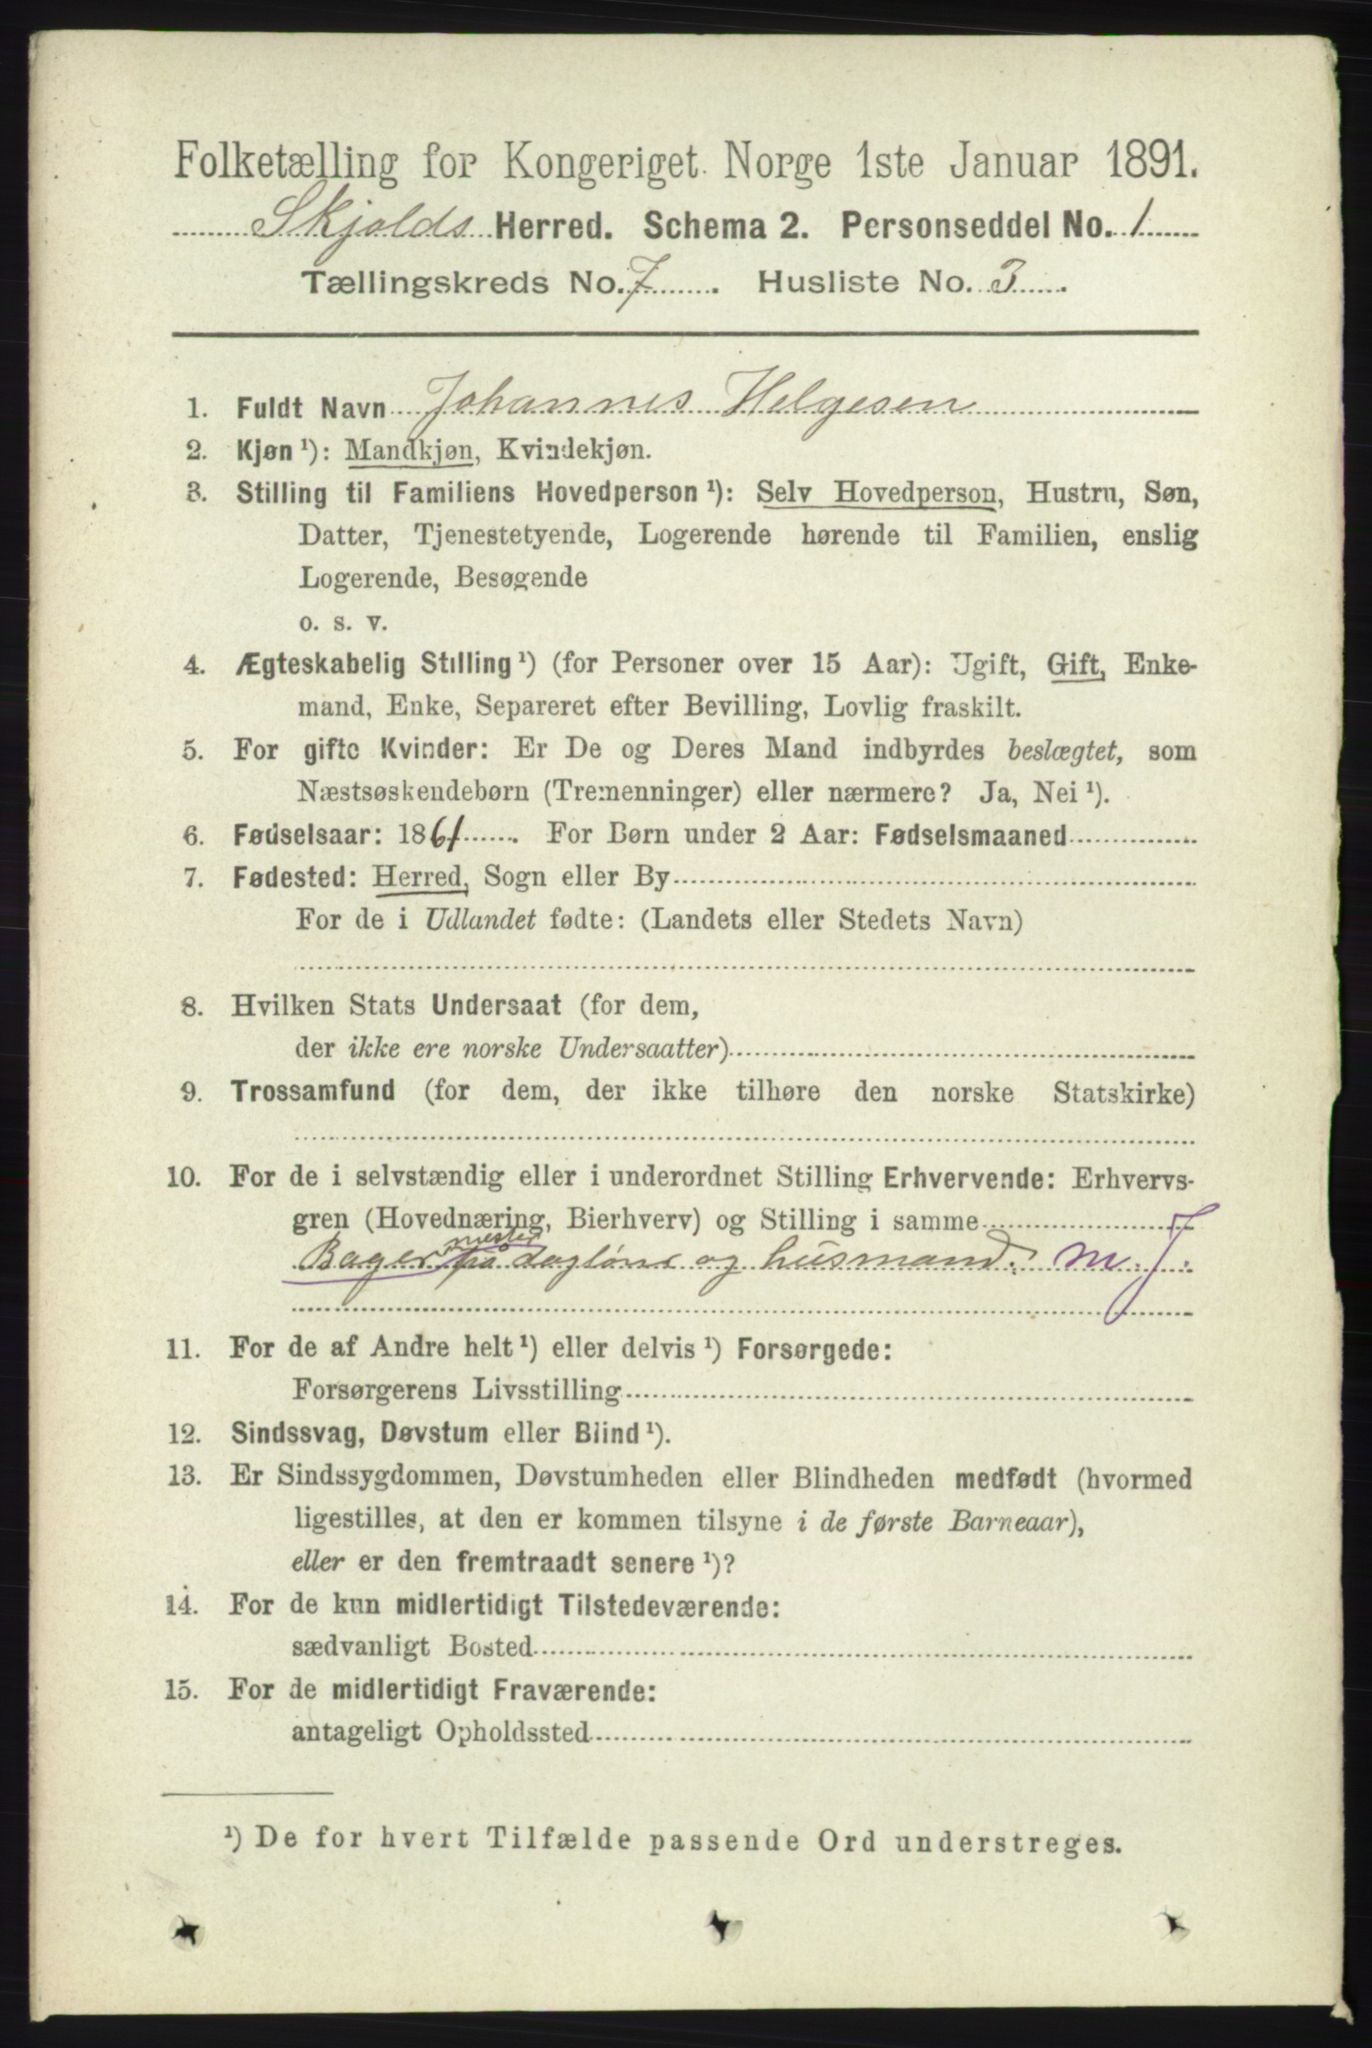 Folketælling for Kongeriget Norge 1ste Januar 1891.
Skjolds Herred. Schema 2. Personseddel No. 1
Tællingskreds No. 7. Husliste No. 3.
1. Fuldt Navn Johannes Helgesen
2. Kjøn ¹): Mandkjøn, Kvindekjøn.
3. Stilling til Familiens Hovedperson ¹): Selv Hovedperson, Hustru, Søn,
Datter, Tjenestetyende, Logerende hørende til Familien, enslig
Logerende, Besøgende
o. s. v.
4. Ægteskabelig Stilling ¹) (for Personer over 15 Aar): Ugift, Gift, Enke-
mand, Enke, Separeret efter Bevilling, Lovlig fraskilt.
5. For gifte Kvinder: Er De og Deres Mand indbyrdes beslægtet, som
Næstsøskendebørn (Tremenninger) eller nærmere? Ja, Nei ¹).
6. Fødselsaar: 1861. For Børn under 2 Aar: Fødselsmaaned
7. Fødested: Herred, Sogn eller By
For de i Udlandet fødte: (Landets eller Stedets Navn)
8. Hvilken Stats Undersaat (for dem,
der ikke ere norske Undersaatter)
9. Trossamfund (for dem, der ikke tilhøre den norske Statskirke)
10. For de i selvstændig eller i underordnet Stilling Erhvervende: Erhvervs-
gren (Hovednæring, Bierhverv) og Stilling i samme
mester
Bager på dagløns og husmand. m. J.
11. For de af Andre helt ¹) eller delvis ¹) Forsørgede:
Forsørgerens Livsstilling
12. Sindssvag, Døvstum eller Blind ¹).
13. Er Sindssygdommen, Døvstumheden eller Blindheden medfødt (hvormed
ligestilles, at den er kommen tilsyne i de første Barneaar),
eller er den fremtraadt senere ¹)?
14. For de kun midlertidigt Tilstedeværende:
sædvanligt Bosted
15. For de midlertidigt Fraværende:
antageligt Opholdssted
¹) De for hvert Tilfælde passende Ord understreges.